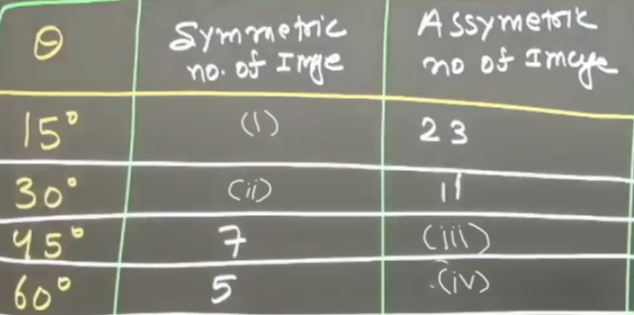 θ Symmetric no. of Imge Assymetric no of Image
15° (i) 23
30° (ii) 11
45° 7 (iii)
60° 5 (iv)